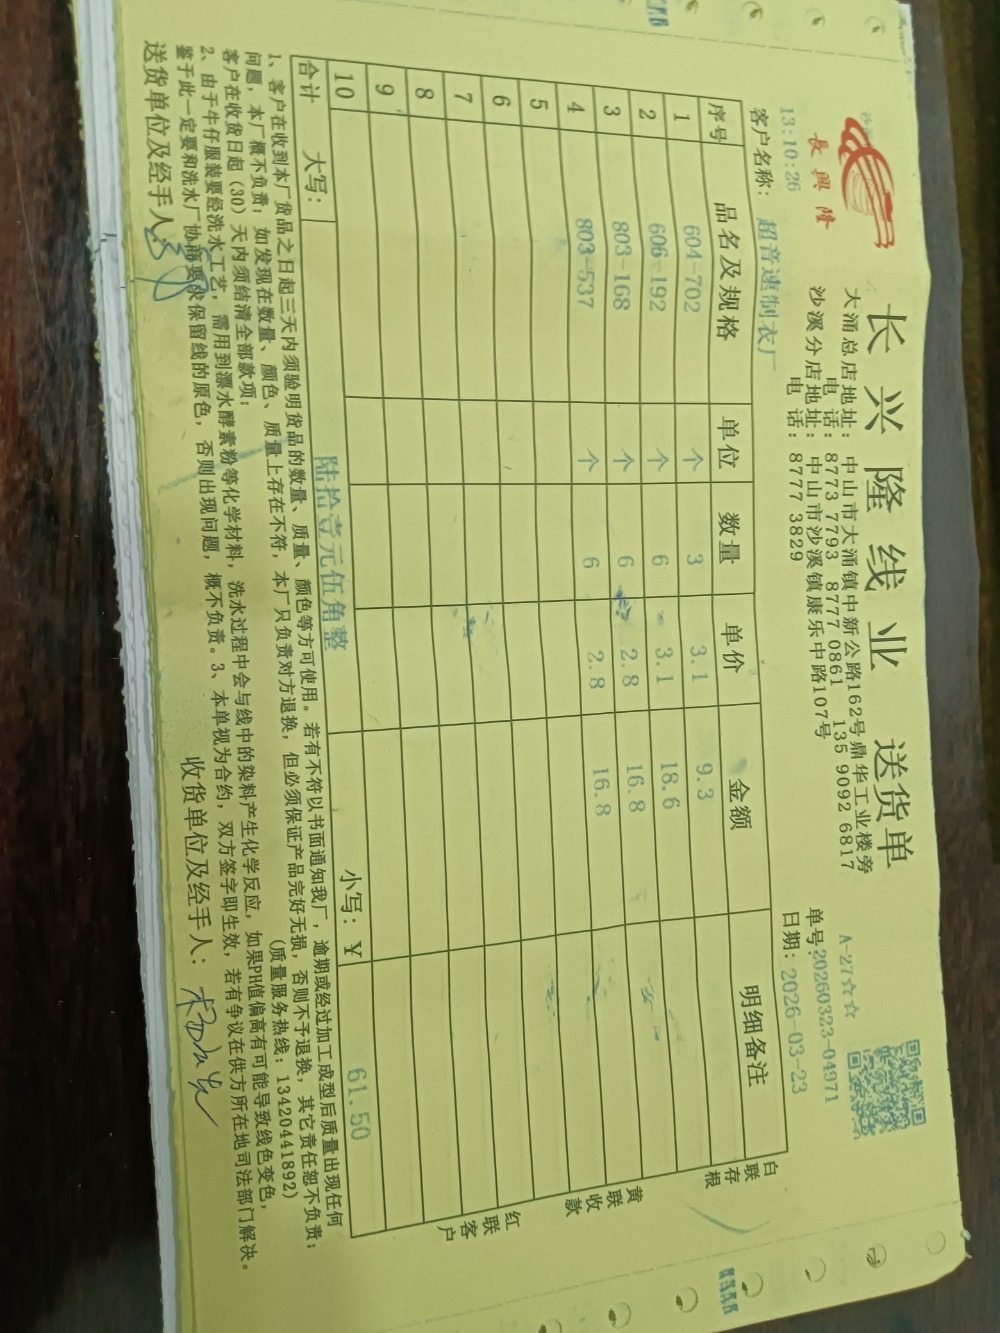 长兴隆线业 送货单
長興隆
大涌总店地址：中山市大涌镇中新公路162号鼎华工业楼旁
电 话：8773 7793 8777 0861 135 9092 6817
沙溪分店地址：中山市沙溪镇康乐中路107号
电 话：8777 3829
A-27☆☆
单号：20260323-04971
13:10:26
日期：2026-03-23
客户名称：超音速制衣厂
序号 品名及规格 单位 数量 单价 金额 明细备注
1 604-702 个 3 3.1 9.3
2 606-192 个 6 3.1 18.6
3 803-168 个 6 2.8 16.8
4 803-537 个 6 2.8 16.8
5
6
7
8
9
10
合计 大写： 陆拾壹元伍角整 小写：￥ 61.50
白联存根
黄联收款
红联客户
1、客户在收到本厂货品之日起三天内须验明货品的数量、质量、颜色等方可使用。若有不符以书面通知我厂，逾期或经过加工成型后质量出现任何
问题，本厂概不负责；如发现在数量、颜色、质量上存在不符，本厂只负责对方退换，但必须保证产品完好无损，否则不予退换，其它责任恕不负责；
客户在收货日起（30）天内须结清全部款项； （质量服务热线：13420441892）
2、由于牛仔服装要经洗水工艺，需用到漂水酵素粉等化学材料，洗水过程中会与线中的染料产生化学反应，如果PH值偏高有可能导致线色变色，
鉴于此一定要和洗水厂协商要求保留线的原色，否则出现问题，概不负责。3、本单视为合约，双方签字即生效，若有争议在供方所在地司法部门解决。
送货单位及经手人： 收货单位及经手人：